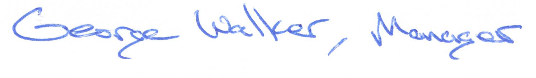 George Walker, Manager